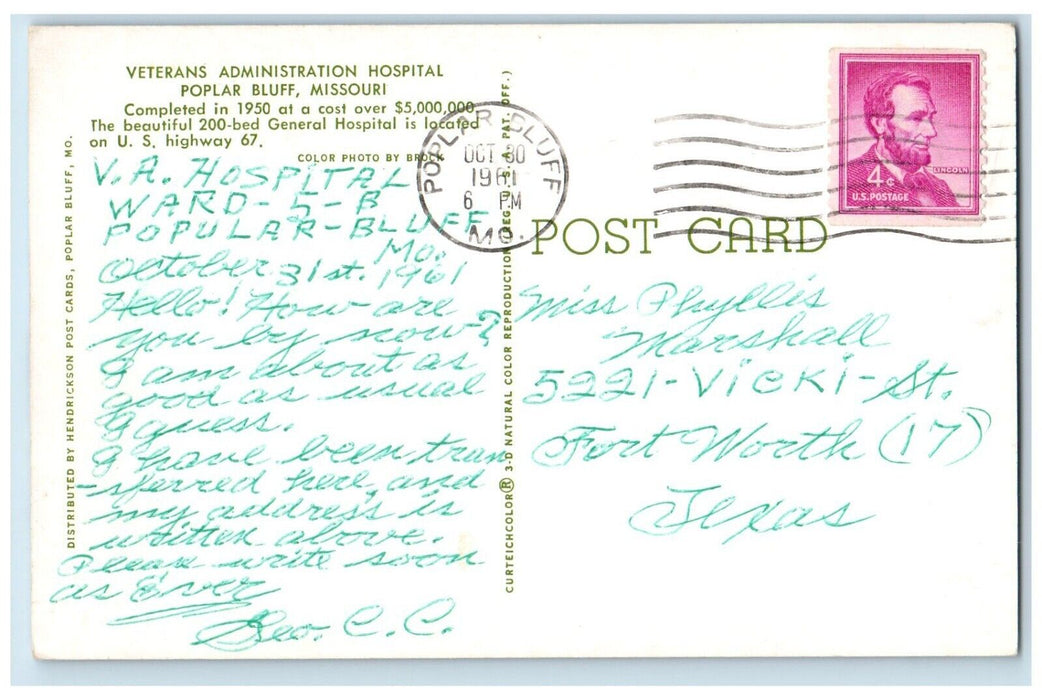 VETERANS ADMINISTRATION HOSPITAL
POPLAR BLUFF, MISSOURI
Completed in 1950 at a cost over $5,000,000.
The beautiful 200-bed General Hospital is located
on U. S. highway 67.
COLOR PHOTO BY BROCK
V.A. HOSPITAL
WARD-5-B
POPULAR-BLUFF
Mo.
October 31st. 1961
Hello! How are
you by now?
I am about as
good as usual
I guess.
I have been tran
-sferred here, and
my address is
written above.
Please write soon
as Ever
Geo. C. C.
DISTRIBUTED BY HENDRICKSON POST CARDS, POPLAR BLUFF, MO.
CURTEICHCOLOR® 3-D NATURAL COLOR REPRODUCTION (REG. U.S.A. PAT. OFF.)
POPLAR BLUFF
OCT 30
1961
6 PM
MO.
4¢
LINCOLN
U.S. POSTAGE
POST CARD
Miss Phyllis
Marshall
5221-Vicki-St.
Fort Worth (17)
Texas